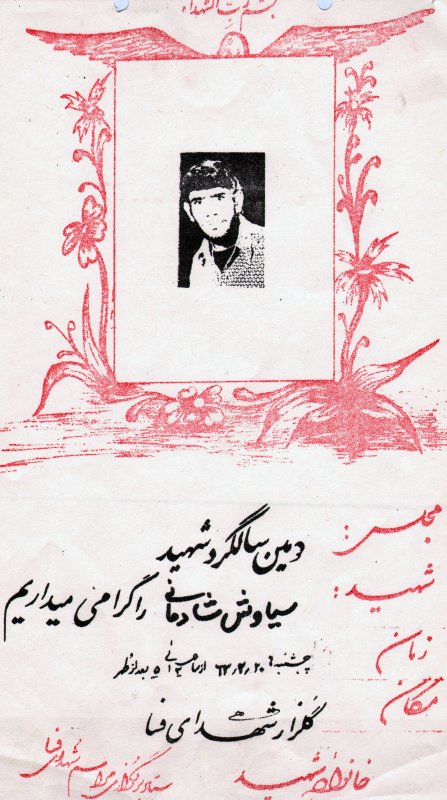 مجلس: دومین سالگرد شهید
شهید: سیاوش شادمانی را گرامی میداریم
زمان پنجشنبه ۶۲٫۲٫۲۰ از ساعت ۳ الی ۵ بعدازظهر
مکان گلزار شهدای فسا
خانواده شهید ستاد برگزاری مراسم شهدای فسا